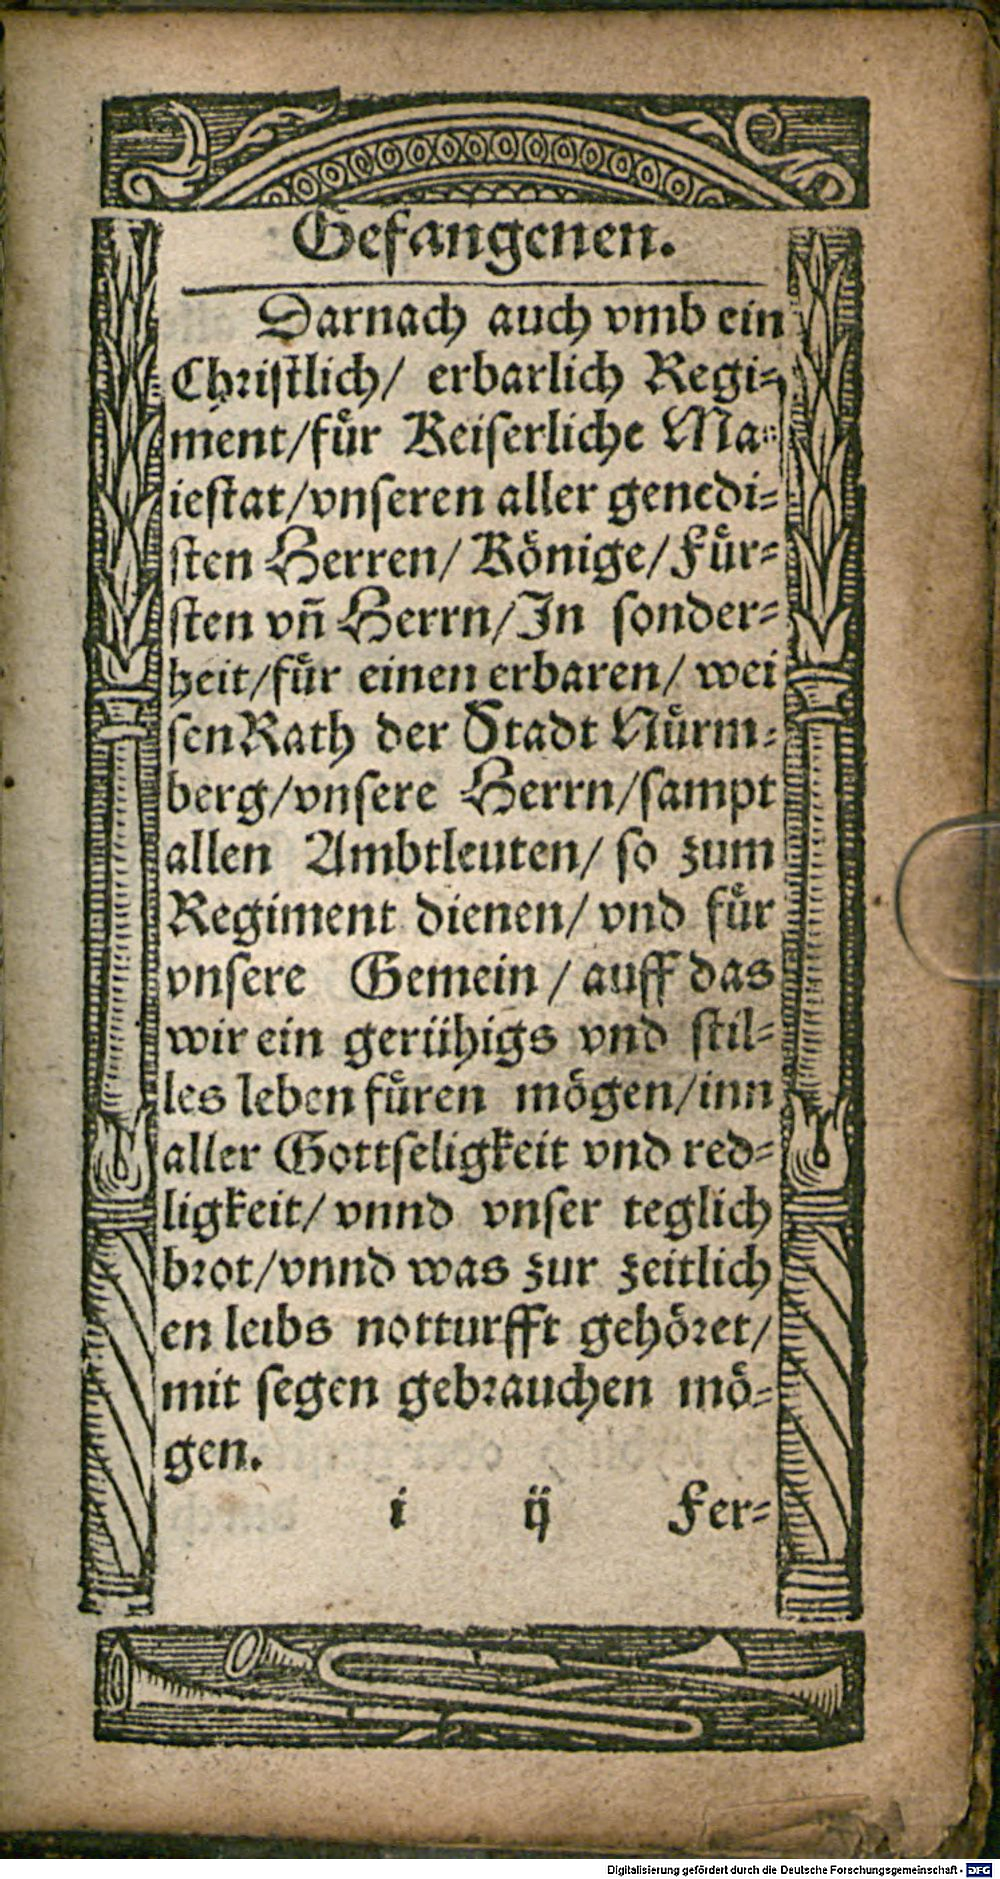 Gefangenen.
Darnach auch vmb ein
Christlich/ erbarlich Regi-
ment/für Keiserliche Ma-
iestat/vnseren aller genedi-
sten Herren/ Könige/ Für-
sten vñ Herrn/In sonder-
heit/für einen erbaren/ wei
sen Rath der Stadt Nürm-
berg/vnsere Herrn/sampt
allen Ambtleuten/ so zum
Regiment dienen/ vnd für
vnsere Gemein / auff das
wir ein gerühigs vnd stil-
les leben füren mögen/inn
aller Gottseligkeit vnd red-
ligkeit/ vnnd vnser teglich
brot/vnnd was zur zeitlich
en leibs notturfft gehöret/
mit segen gebrauchen mö-
gen.
i ij Fer-
Digitalisierung gefördert durch die Deutsche Forschungsgemeinschaft - DFG